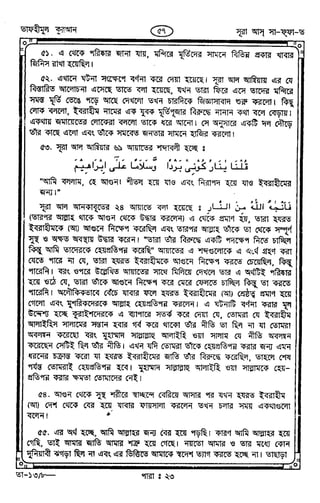 তাফহীমুল কুরআন ৫৭ সূরা আস্ সা-ফ্ফা-ত
৫১. এ থেকে পরিষ্কার জানা যায়, মন্দিরে মূর্তিদের সামনে বিভিন্ন প্রকার খাবার
জিনিস রাখা হয়েছিল।
৫২. এখানে ঘটনা সংক্ষেপে বর্ণনা করে দেয়া হয়েছে। সূরা আল আম্বিয়ায় এর যে
বিস্তারিত আলোচনা এসেছে তাতে বলা হয়েছে, যখন তারা ফিরে এসে তাদের মন্দিরে
সমস্ত মূর্তি ভেঙে পড়ে আছে দেখলো তখন চারদিকে জিজ্ঞাসাবাদ শুরু করলো। কিছু
লোক বললো, ইবরাহীম নামের এক যুবক মূর্তিপূজার বিরুদ্ধে নানান কথা বলে বেড়ায়।
একথায় জমায়েতের লোকেরা বললো তাকে ধরে আনো। সে অনুসারে একটি দল দৌড়ে
তাঁর কাছে এলো এবং তাঁকে সমবেত জনতার সামনে হাজির করলো।
৫৩. সূরা আল আম্বিয়ার ৬৯ আয়াতের শব্দাবলী হচ্ছে :
قُلْنَا يٰنَارُ كُوْنِىْ بَرْدًا وَّسَلٰمًا عَلٰٓى اِبْرٰهِيْمَ
"আমি বললাম, হে আগুন। শীতল হয়ে যাও এবং নিরাপদ হয়ে যাও ইবরাহীমের
জন্য।"
সূরা আল আনকাবুতের ২৪ আয়াতে বলা হয়েছে : فَاَنْجٰهُ اللّٰهُ مِنَ النَّارِ
(তারপর আল্লাহ তাকে আগুন থেকে উদ্ধার করলেন)। এ থেকে প্রমাণ হয়, তারা হযরত
ইবরাহীমকে (আ) আগুনে নিক্ষেপ করেছিল এবং তারপর আল্লাহ তাঁকে তা থেকে সম্পূর্ণ
সুস্থ ও অক্ষত অবস্থায় উদ্ধার করেন। "তারা তাঁর বিরুদ্ধে একটি পদক্ষেপ নিতে চাচ্ছিল
কিন্তু আমি তাদেরকে হেয়প্রতিপন্ন করেছি" আয়াতের এ শব্দগুলোকে এ অর্থে গ্রহণ করা
যেতে পারে না যে, তারা হযরত ইবরাহীমকে আগুনে নিক্ষেপ করতে চেয়েছিল, কিন্তু
পারেনি। বরং ওপরে উল্লেখিত আয়াতের সাথে মিলিয়ে দেখলে তার এ অর্থটিই পরিষ্কার
হয়ে ওঠে যে, তারা তাঁকে আগুনে নিক্ষেপ করে মেরে ফেলতে চাচ্ছিল কিন্তু তা করতে
পারেনি। অলৌকিকভাবে বেঁচে যাবার ফলে হযরত ইবরাহীমের (আ) শ্রেষ্ঠত্ব প্রমাণ হয়ে
গেলো এবং মুশরিকদেরকে আল্লাহ হেয়প্রতিপন্ন করলেন। এ ঘটনাটি বর্ণনা করার মূল
উদ্দেশ্য হচ্ছে কুরাইশদেরকে এ ব্যাপারে সতর্ক করে দেয়া যে, তোমরা যে ইবরাহীম
আলাইহিস সালামের সন্তান হবার গর্ব করে থাকো তাঁর নীতি তা ছিল না যা তোমরা
অবলম্বন করেছো বরং মুহাম্মাদ সাল্লাল্লাহু আলাইহি ওয়া সাল্লাম যে নীতি অবলম্বন
করেছেন সেটিই ছিল তাঁর নীতি। এখন যদি তোমরা তাঁকে হেয়প্রতিপন্ন করার জন্য এমন
ধরনের চক্রান্ত করো যা হযরত ইবরাহীমের জাতি তাঁর বিরুদ্ধে করেছিল, তাহলে শেষ
পর্যন্ত তোমরাই হেয়প্রতিপন্ন হবে। মুহাম্মাদ সাল্লাল্লাহু আলাইহি ওয়া সাল্লামকে হেয়-
প্রতিপন্ন করার ক্ষমতা তোমাদের নেই।
৫৪. আগুন থেকে সুস্থ শরীরে স্বাচ্ছন্দে বেরিয়ে আসার পর যখন হযরত ইবরাহীম
(আ) দেশ থেকে বের হয়ে যাবার ফায়সালা করলেন তখন চলার সময় একথাগুলো
বলেন।
৫৫. এর অর্থ হচ্ছে, আমি আল্লাহর জন্য বের হয়ে পড়ছি। কারণ আমি আল্লাহর হয়ে
গেছি, তাই আমার জাতি আমার শত্রু হয়ে গেছে। নয়তো আমার ও তার মধ্যে কোন
দুনিয়াবী ঝগড়া ছিল না এবং এর ভিত্তিতে আমাকে স্বদেশ ত্যাগ করতে হচ্ছে না। তাছাড়া
তা-১৩/৮— পারা : ২৩